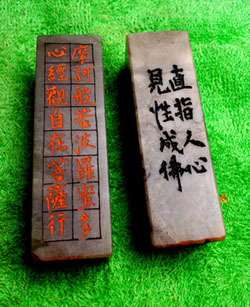 摩訶般若波羅蜜多
心經觀自在菩薩行
直指人心
見性成佛